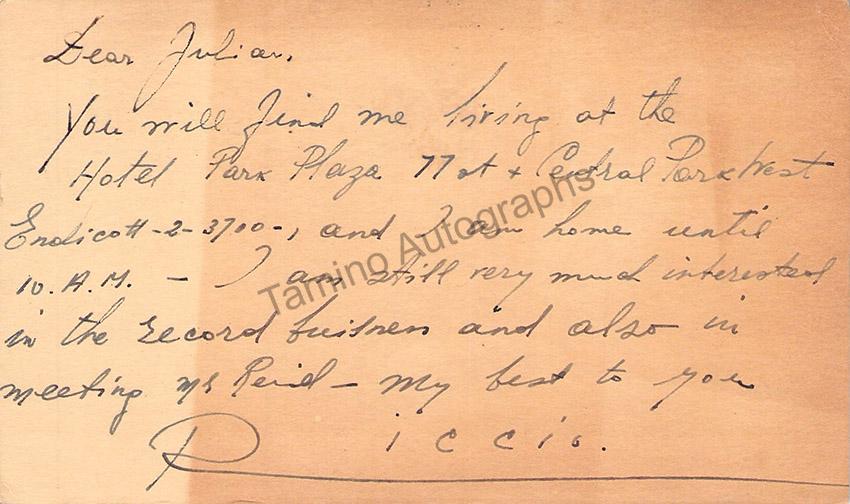 Dear Julian,
You will find me living at the
Hotel Park Plaza 77 st + Central Park West
Endicott-2-3700-, and I am home until
10. A.M. - I am still very much interested
in the record buisness and also in
meeting Mr Reid - My best to you
Riccio.
Tamino Autographs